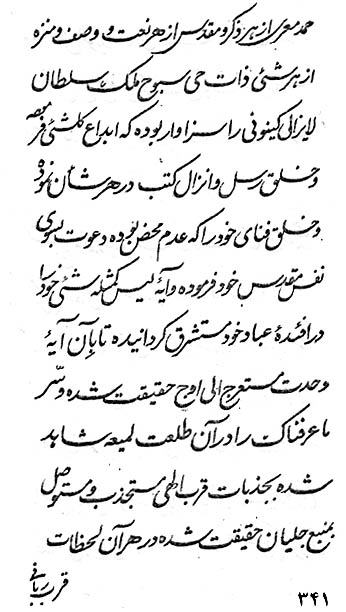 حمد معری از هر ذکر و مقدس از هر نعت و وصف و منزه
از هر شئی ذات حی سبوح ملک سلطان
لایزالی کینونی را سزاوار بوده که ابداع کلشئی فرموده
و خلق رسل و انزال کتب در هر شأن نموده
و خلق فنای خود را که عدم محض بوده دعوت بسوی
نفس مقدس خود فرموده و آیهٔ لیس کمثله شئی خود را
در افئدهٔ عباد خود مستشرق گردانیده تا بآن آیهٔ
وحدت مستعرج الی اوج حقیقت شده و سر
ما عرفناک را در آن طلعت لمیعه شاهد
شده بجذبات قرب الهی مستجذب و مستوصل
بمنبع جلیان حقیقت شده در هر آن لحظات
قرب ربانی
۳۴۱